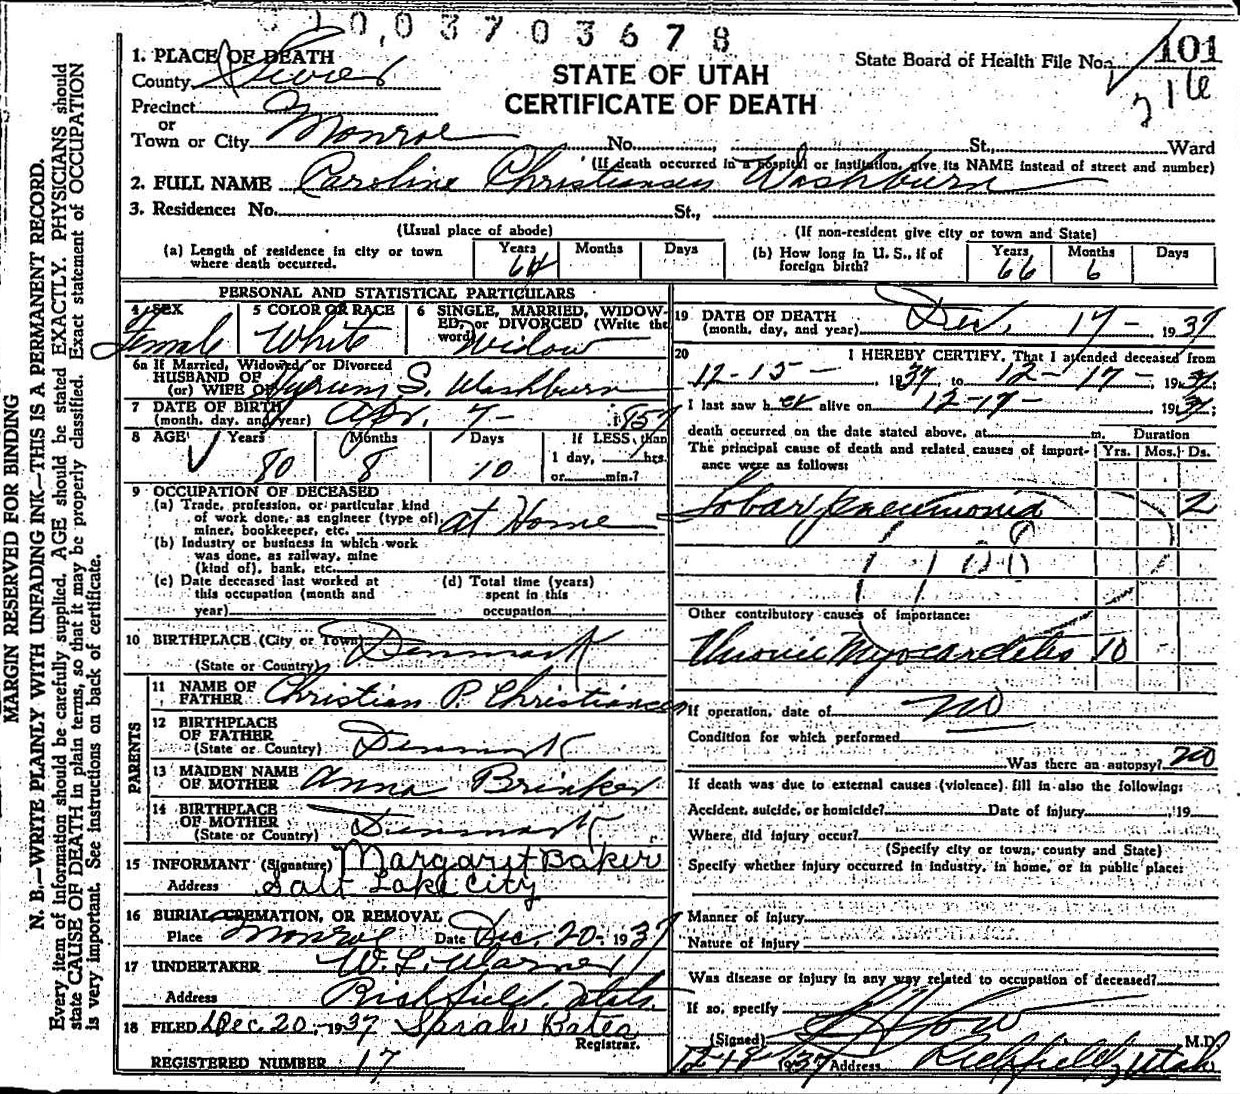 0 1 0 0 3 7 0 3 6 7 8
1. PLACE OF DEATH
County Sevier
Precinct
or
Town or City Monroe No. St., Ward
STATE OF UTAH
CERTIFICATE OF DEATH
State Board of Health File No. 101
216
(If death occurred in a hospital or institution, give its NAME instead of street and number)
2. FULL NAME Caroline Christiansen Washburn
3. Residence: No. St.,
(Usual place of abode) (If non-resident give city or town and State)
(a) Length of residence in city or town where death occurred. Years 64 Months Days
(b) How long in U. S., if of foreign birth? Years 66 Months 6 Days
PERSONAL AND STATISTICAL PARTICULARS
4 SEX Female
5 COLOR OR RACE White
6 SINGLE, MARRIED, WIDOWED, or DIVORCED (Write the word) Widow
6a If Married, Widowed, or Divorced
HUSBAND OF
(or) WIFE OF Hyrum S. Washburn
7 DATE OF BIRTH
(month, day, and year) Apr. 7- 1857
8 AGE Years 80 Months 8 Days 10 If LESS than 1 day, hrs. or min.?
9 OCCUPATION OF DECEASED
(a) Trade, profession, or particular kind of work done, as engineer (type of) miner, bookkeeper, etc. at Home
(b) Industry or business in which work was done, as railway, mine (kind of), bank, etc.
(c) Date deceased last worked at this occupation (month and year)
(d) Total time (years) spent in this occupation
10 BIRTHPLACE (City or Town)
(State or Country) Denmark
PARENTS
11 NAME OF FATHER Christian P. Christiansen
12 BIRTHPLACE OF FATHER
(State or Country) Denmark
13 MAIDEN NAME OF MOTHER Anna Brinker
14 BIRTHPLACE OF MOTHER
(State or Country) Denmark
15 INFORMANT (Signature) Margaret Baker
Address Salt Lake City
16 BURIAL, CREMATION, OR REMOVAL
Place Monroe Date Dec. 20- 1937
17 UNDERTAKER W. L. Warner
Address Richfield, Utah.
18 FILED Dec 20, -1937 Sarah Bates
Registrar.
REGISTERED NUMBER 17
19 DATE OF DEATH
(month, day, and year) Dec. 17- 1937
20 I HEREBY CERTIFY, That I attended deceased from
12-15- 1937 to 12-17- 1937
I last saw her alive on 12-17- 1937;
death occurred on the date stated above, at m. Duration
The principal cause of death and related causes of importance were as follows: Yrs. Mos. Ds.
Lobar pneumonia 2
108
Other contributory causes of importance:
Chronic Myocarditis 10
If operation, date of no
Condition for which performed
Was there an autopsy? no
If death was due to external causes (violence) fill in also the following:
Accident, suicide, or homicide? Date of injury , 19
Where did injury occur?
(Specify city or town, county and State)
Specify whether injury occurred in industry, in home, or in public place:
Manner of injury
Nature of injury
Was disease or injury in any way related to occupation of deceased?
If so, specify
(Signed) M.D.
12-18- 1937 Address Richfield, Utah
MARGIN RESERVED FOR BINDING
N. B.—WRITE PLAINLY WITH UNFADING INK—THIS IS A PERMANENT RECORD.
Every item of information should be carefully supplied. AGE should be stated EXACTLY. PHYSICIANS should
state CAUSE OF DEATH in plain terms, so that it may be properly classified. Exact statement of OCCUPATION
is very important. See instructions on back of certificate.